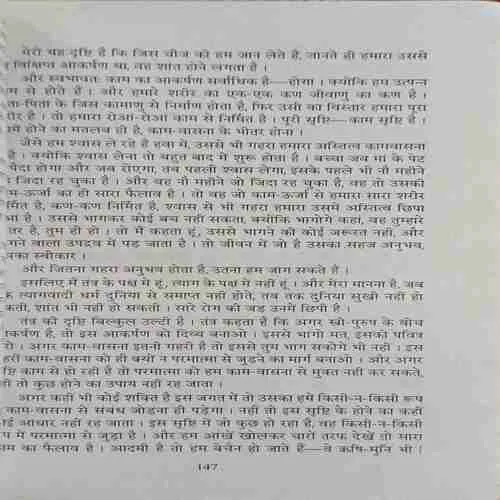 मेरी यह दृष्टि है कि जिस चीज को हम जान लेते हैं, जानते ही हमारा उससे
विक्षिप्त आकर्षण था, वह शांत होने लगता है ।
और स्वभावतः काम का आकर्षण सर्वाधिक है—होगा । क्योंकि हम उत्पन्न
म से होते हैं । और हमारे शरीर का एक-एक कण जीवाणु का कण है ।
ता-पिता के जिस कामाणु से निर्माण होता है, फिर उसी का विस्तार हमारा पूरा
रीर है । तो हमारा रोआं-रोआं काम से निर्मित है । पूरी सृष्टि—काम सृष्टि है ।
में होने का मतलब ही है, काम-वासना के भीतर होना ।
जैसे हम श्वास ले रहे हैं हवा में, उससे भी गहरा हमारा अस्तित्व कामवासना
है । क्योंकि श्वास लेना तो बहुत बाद में शुरू होता है । बच्चा जब मां के पेट
पैदा होगा और जब रोएगा, तब पहली श्वास लेगा, इसके पहले भी नौ महीने
जिंदा रह चुका है । और वह नौ महीने जो जिंदा रह चुका है, वह तो उसकी
म-ऊर्जा का ही सारा फैलाव है । तो वह जो काम-ऊर्जा से हमारा सारा शरीर
र्मित है, कण-कण निर्मित है, श्वास से भी गहरा हमारा उसमें अस्तित्व छिपा
आ है । उससे भागकर कोई बच नहीं सकता, क्योंकि भागोगे कहां, वह तुम्हारे
तर है, तुम ही हो । तो मैं कहता हूं, उससे भागने की कोई जरूरत नहीं, और
गने वाला उपद्रव में पड़ जाता है । तो जीवन में जो है उसका सहज अनुभव,
सका स्वीकार ।
और जितना गहरा अनुभव होता है, उतना हम जाग सकते हैं ।
इसलिए मैं तंत्र के पक्ष में हूं, त्याग के पक्ष में नहीं हूं । और मेरा मानना है, जब
क त्यागवादी धर्म दुनिया से समाप्त नहीं होते, तब तक दुनिया सुखी नहीं हो
कती, शांत भी नहीं हो सकती । सारे रोग की जड़ उनमें छिपी है ।
तंत्र की दृष्टि बिल्कुल उल्टी है । तंत्र कहता है कि अगर स्त्री-पुरुष के बीच
कर्षण है, तो इस आकर्षण को दिव्य बनाओ । इससे भागो मत, इसको पवित्र
रो । अगर काम-वासना इतनी गहरी है तो इससे तुम भाग सकोगे भी नहीं । इस
हरी काम-वासना को ही क्यों न परमात्मा से जुड़ने का मार्ग बनाओ । और अगर
ष्टि काम से हो रही है तो परमात्मा को हम काम-वासना से मुक्त नहीं कर सकते,
हीं तो कुछ होने का उपाय नहीं रह जाता ।
अगर कहीं भी कोई शक्ति है इस जगत में तो उसका हमें किसी-न-किसी रूप
काम-वासना से संबंध जोड़ना ही पड़ेगा । नहीं तो इस सृष्टि के होने का कहीं
ोई आधार नहीं रह जाता । इस सृष्टि में जो कुछ हो रहा है, वह किसी-न-किसी
प में परमात्मा से जुड़ा है । और हम आंखें खोलकर चारों तरफ देखें तो सारा
ाम का फैलाव है । आदमी है तो हम बेचैन हो जाते हैं—वे ऋषि-मुनि भी (
147